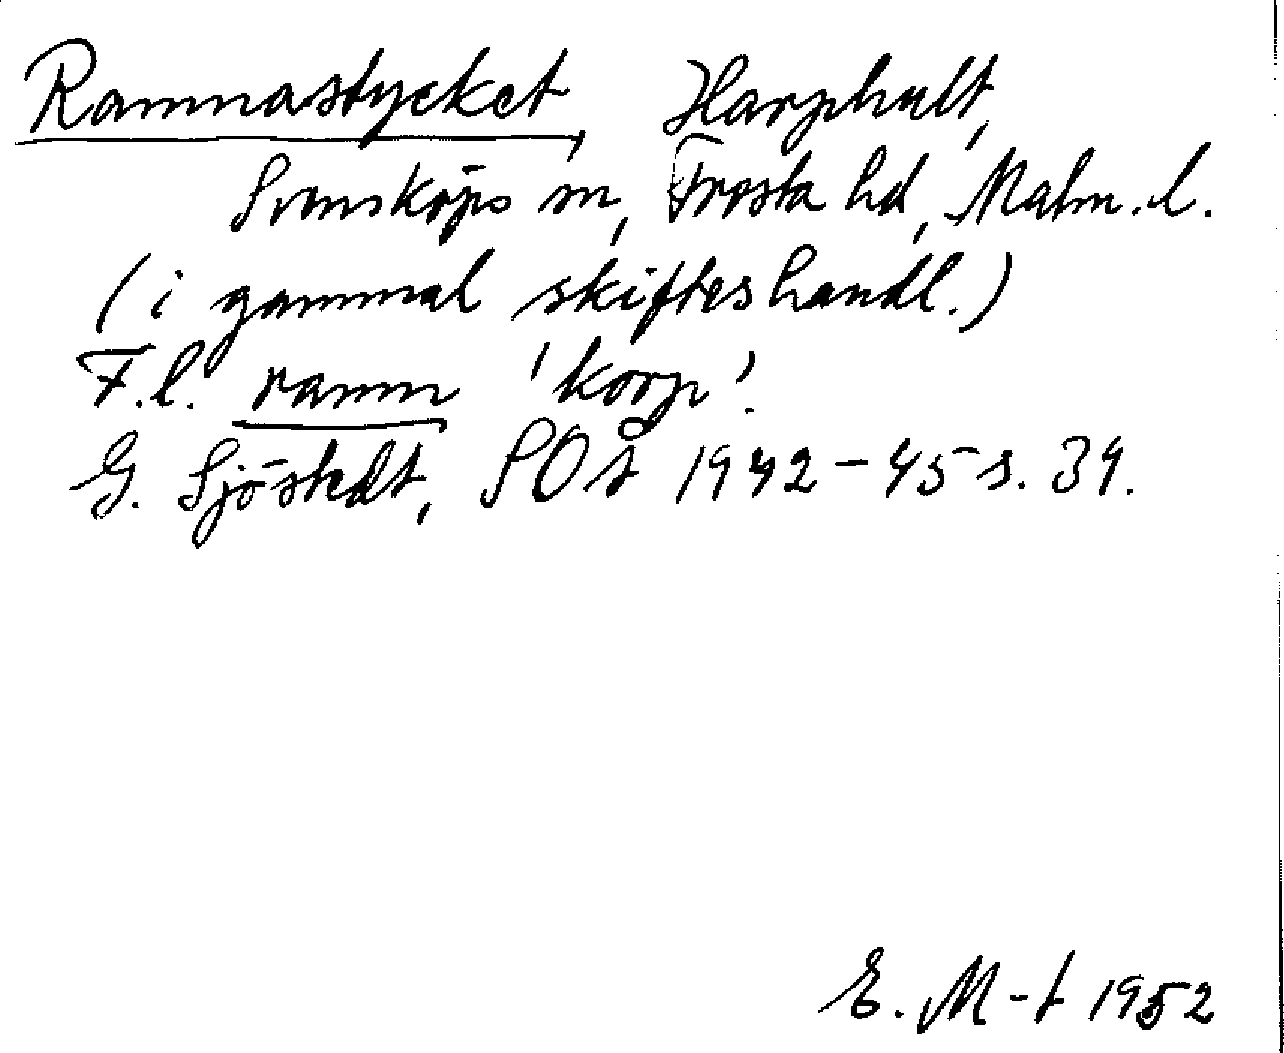 Ramnastycket, Harphult,
Svensköps sn, Frosta hd, Malm. l.
(i gammal skifteshandl.)
F.l. ramn 'korp'.
G. Sjöstedt, SOÅ 1942-45 s. 34.
E. M-t 1952